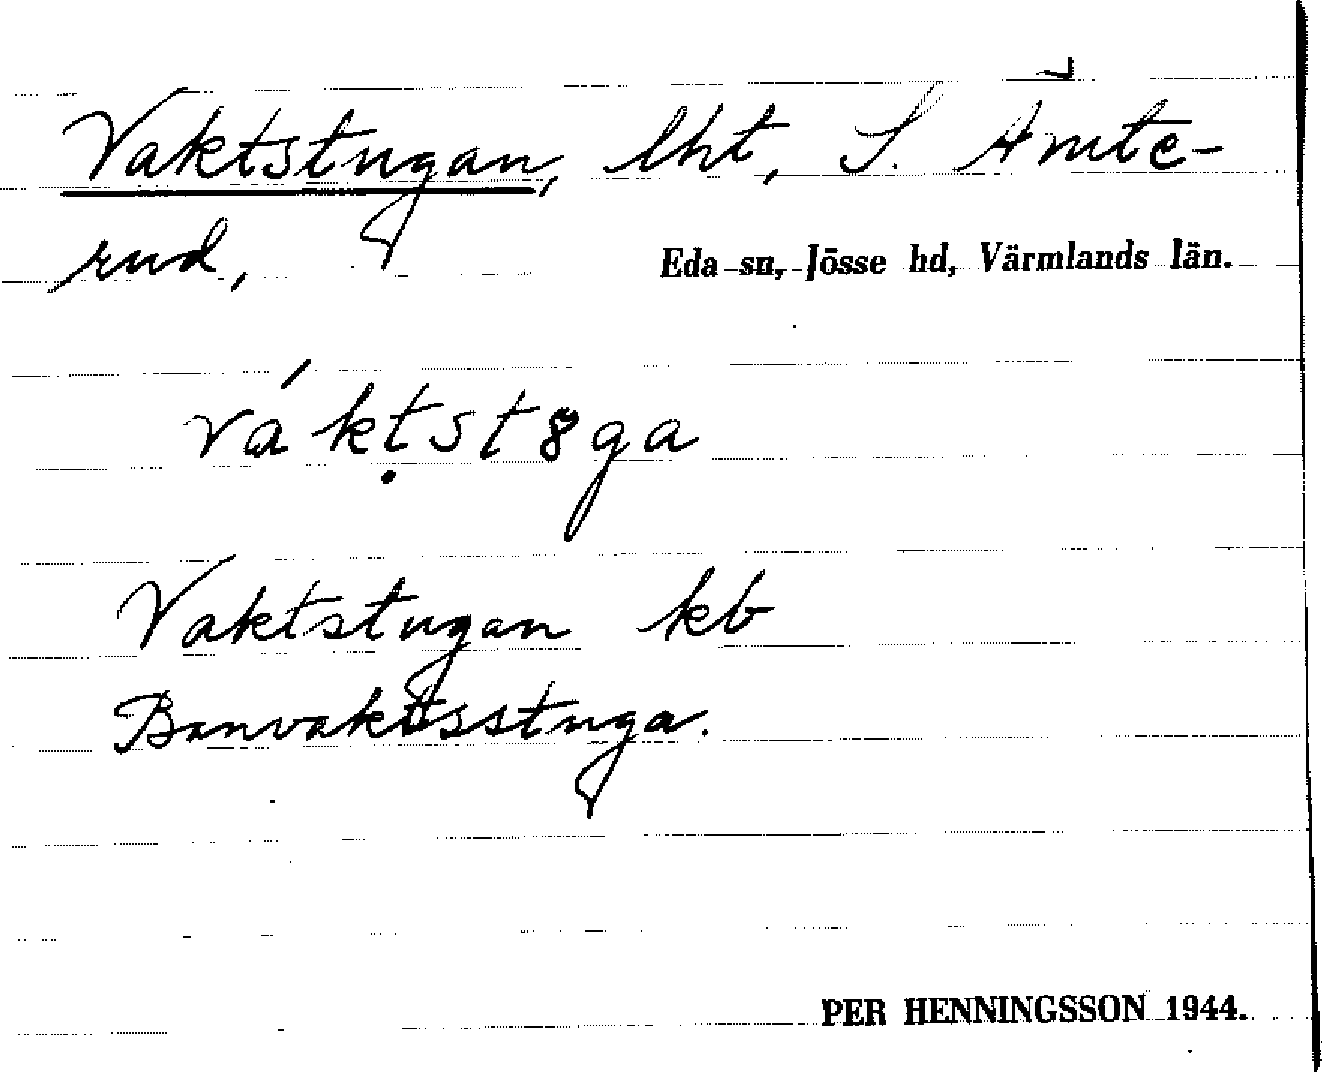 Vaktstugan, lht, S. Ämte-
rud,
Eda sn, Jösse hd, Värmlands län.
váktst8ga
Vaktstugan kb
Banvaktsstuga.
PER HENNINGSSON 1944.